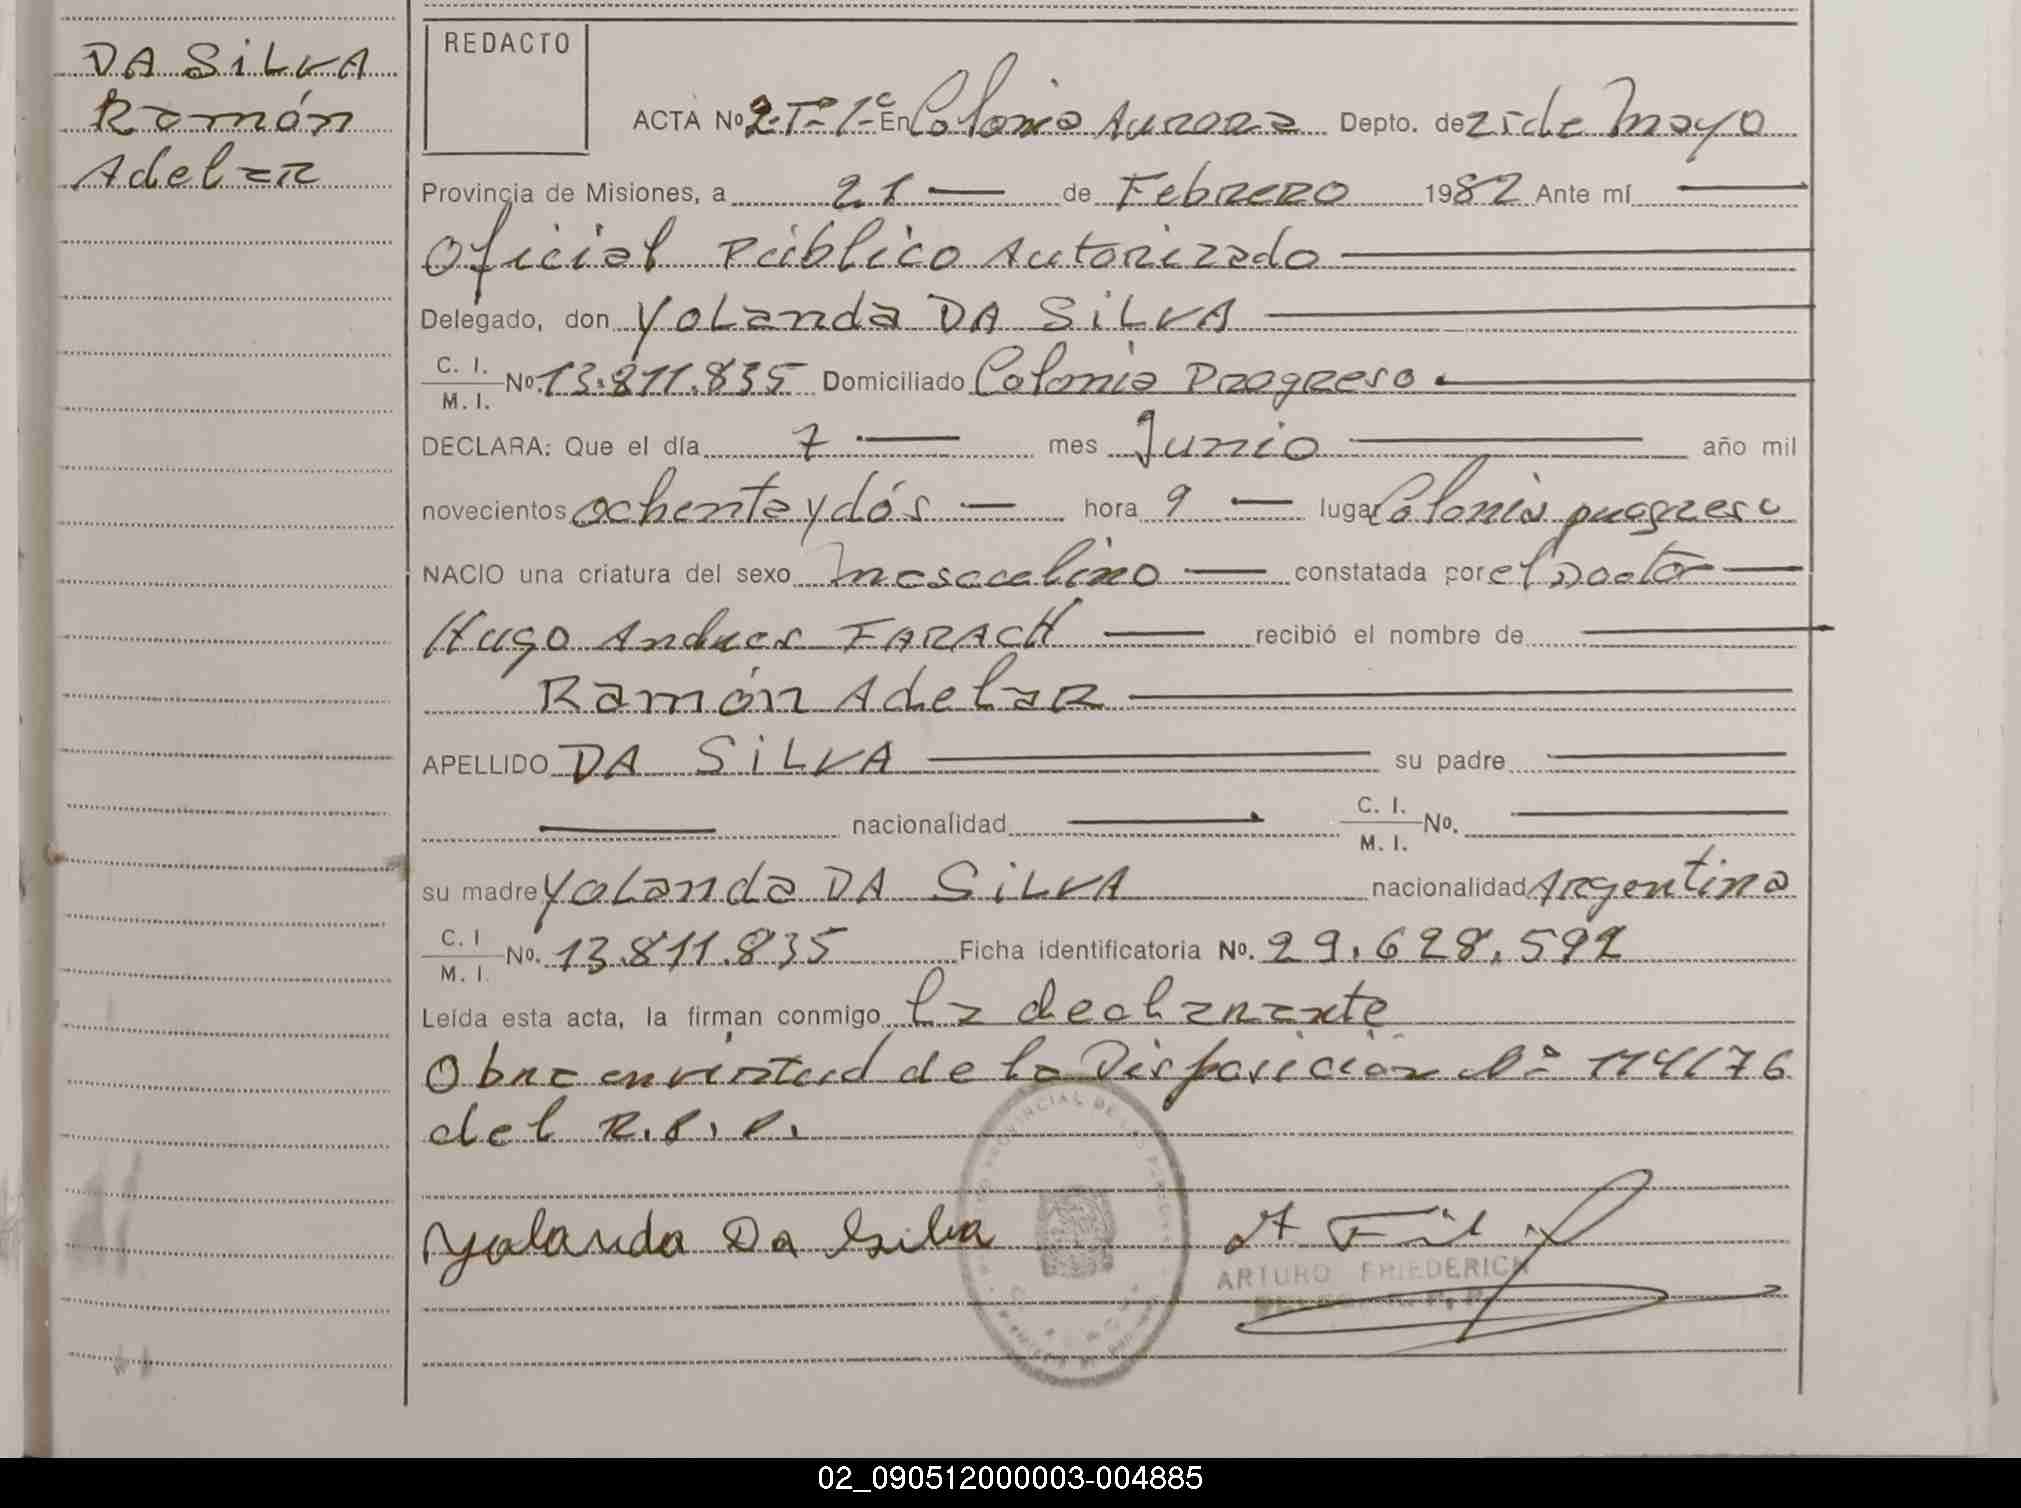 DA SiLVA
Ramón
Adelar
REDACTO
ACTA Nº 2-Tº-1º- En Colonia Aurora Depto. de 25 de Mayo
Provincia de Misiones, a 21 — de Febrero 1982 Ante mí —
Oficial Público Autorizado —
Delegado, don Yolanda DA SiLVA —
C. I.
M. I. Nº. 13.811.835 Domiciliado Colonia Progreso. —
DECLARA: Que el día 7 — mes Junio — año mil
novecientos ochenta y dós — hora 9 — lugar Colonia progreso
NACIO una criatura del sexo Masculino — constatada por el Doctor —
Hugo Andres FARACH — recibió el nombre de —
Ramón Adelar —
APELLIDO DA SiLVA — su padre —
— nacionalidad — C. I.
M. I. Nº. —
su madre Yolanda DA SiLVA nacionalidad Argentina
C. I
M. I. Nº. 13.811.835 Ficha identificatoria Nº. 29.628.592
Leída esta acta, la firman conmigo la declarante
Obra en virtud de la Disposición Nº 114/76
del R.P.P.
Yolanda Da Silva
ARTURO FRIEDERICH
02_090512000003-004885